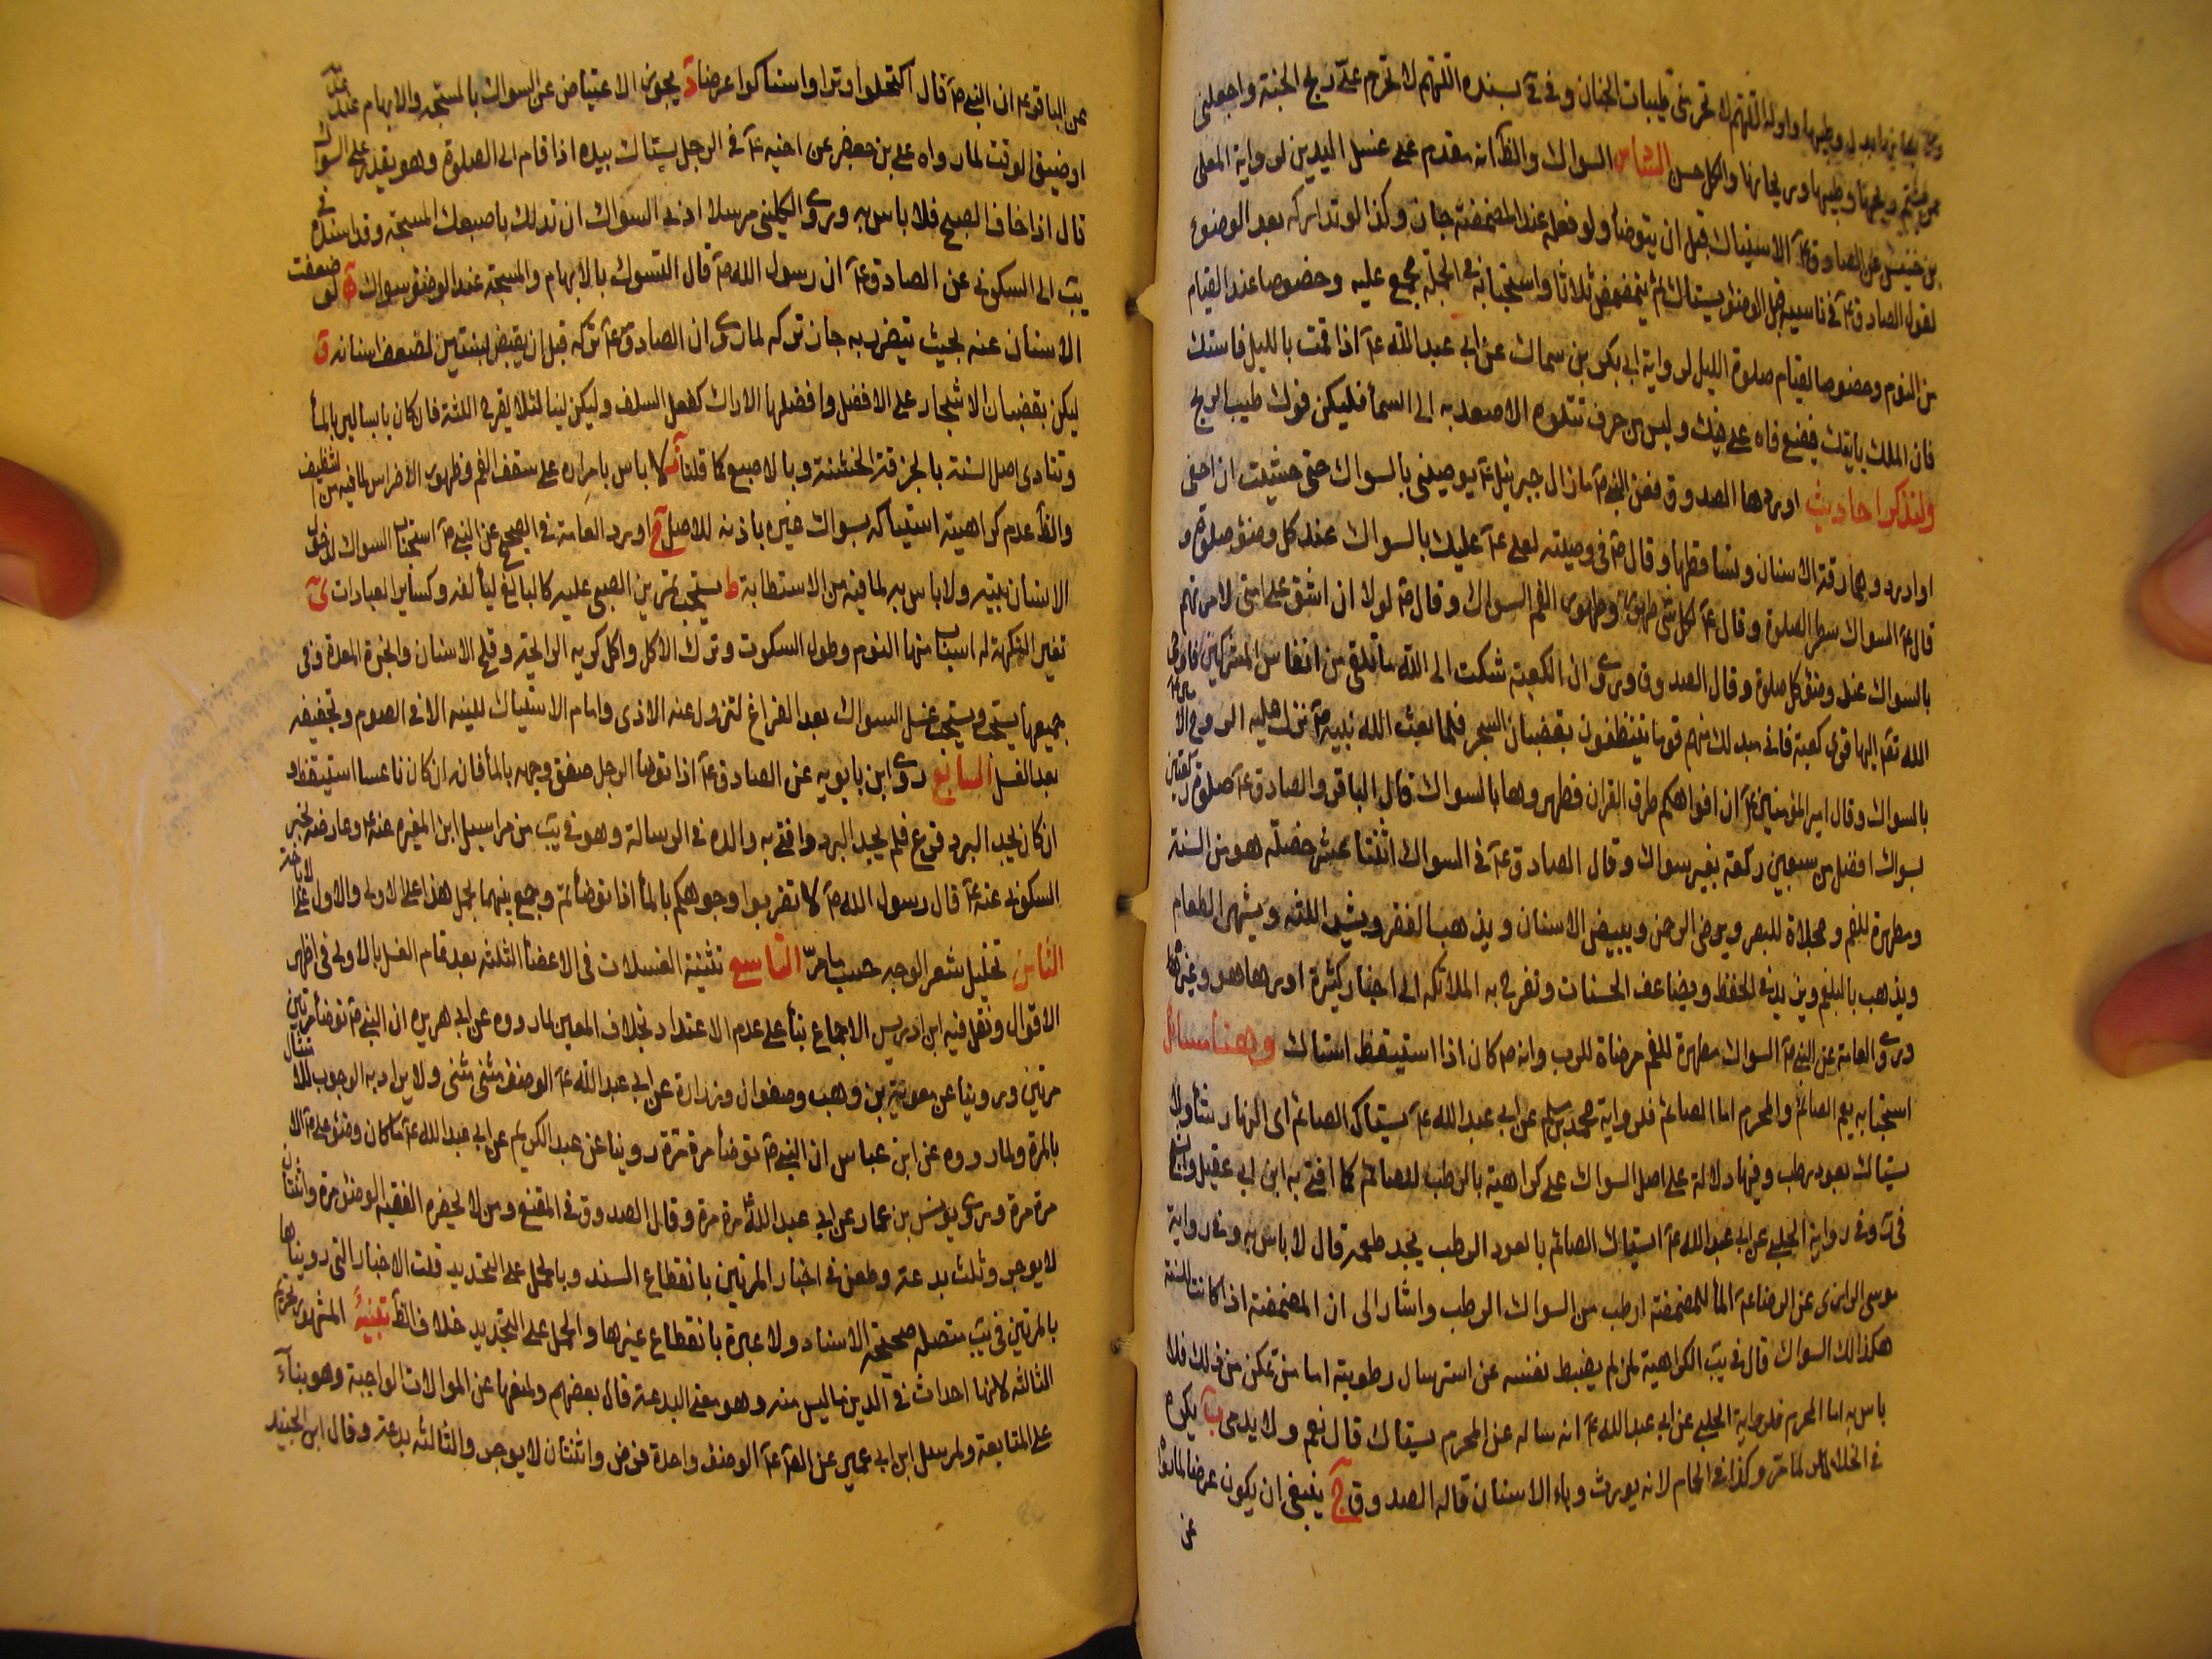 واوله اللهم لا تحرمني طيبات الجنان وفي في بسنده اللهم لا تحرم علي ريح الجنة واجعلني
ممن يشم ريحها وطيبها وريحانها والكل حسن السادس السواك والظ انه مقدم على غسل اليدين لرواية المعلى
بن خنيس عن الصادق ع الاستياك قبل ان يتوضأ ولو فعله عند المضمضة جاز وكذا لو تداركه بعد الوضوء
لقول الصادق ع في ناسيه قبل الوضوء يستاك ثم يتمضمض ثلاثا واستحبابه في الجملة مجمع عليه وخصوصا عند القيام
من النوم وخصوصا لقيام صلوة الليل لرواية ابي بكر بن سماك عن ابي عبد الله ع اذا قمت بالليل فاستك
فان الملك يأتيك فيضع فاه على فيك وليس من حرف تتلوه الا صعد به الى السمأ فليكن فوك طيب الريح
ولنذكر احاديث اوردها الصدوق فعن النبي ص ما زال جبرئيل ع يوصيني بالسواك حتى خشيت ان احفى
او ادرد وهما رقة الاسنان وتساقطها وقال ص في وصيته لعلي ع عليك بالسواك عند كل وضوء صلوة و
قال ع السواك شطر الصلوة وقال ع لكل شئ طهور وطهور الفم السواك وقال ص لولا ان اشق على امتي لامرتهم
بالسواك عند وضوء كل صلوة وقال الصدوق وروى ان الكعبة شكت الى الله ما تلقى من انفاس المشركين فاوحى
الله تعالى اليها قري كعبة فاني مبدلك بهم قوما يتنظفون بقضبان الشجر فلما بعث الله نبيه ص نزل عليه الروح الامين ع
بالسواك وقال امير المؤمنين ع ان افواهكم طرق القران فطهروها بالسواك وقال الباقر والصادق ع صلوة ركعتين
بسواك افضل من سبعين ركعة بغير سواك وقال الصادق ع في السواك اثنتا عشر خصلة هو من السنة
ومطهرة للفم ومجلاة للبصر ويرضي الرحمن ويبيض الاسنان ويذهب بالحفر ويشد اللثه ويشهي الطعام
ويذهب بالبلغم ويزيد في الحفظ ويضاعف الحسنات وتفرح به الملائكة الى اخبار كثيرة اوردها هو وغيره
وروى العامة عن النبي ص السواك مطهرة للفم مرضاة للرب وانه ص كان اذا استيقظ استاك وهنا مسائل
استحبابه يعم الصائم والمحرم اما الصائم فلرواية محمد بن مسلم عن ابي عبد الله ع يستاك الصائم اي النهار شاء ولا
يستاك بعود رطب وفيها دلالة على اصل السواك على كراهية بالرطب للصائم كما افتى به ابن ابي عقيل والشيخ
في رواية الحلبي عن ابي عبد الله ع استياك الصائم بالعود الرطب يجد طعمه قال لا باس به وفي رواية
موسى الرازي عن الرضا ع المأ للمضمضة ارطب من السواك الرطب واشار الى ان المضمضة اذا كانت للسنة
هكذا لك السواك قال في يب الكراهية لمن لم يضبط نفسه عن استرسال رطوبته اما من تمكن من ذلك فلا
باس به اما المحرم فلرواية الحلبي عن ابي عبد الله ع انه ساله عن المحرم يستاك قال نعم ولا يدمي ب يكره
في الخلا لما مر وكذا في الحمام لانه يورث وباء الاسنان قاله الصدوق ج ينبغي ان يكون عرضا لما رواه
عن
عن الباقر ع ان النبي ص قال اكتحلوا وترا واستاكوا عرضا د يجوز الاعتياض عن السواك بالمسبحة والابهام عند عدمه
او ضيق الوقت لما رواه علي بن جعفر عن اخيه ع في الرجل يستاك بيده اذا قام الى الصلوة وهو يقدر على السواك
قال اذا خاف الصبح فلا باس به وروى الكليني مرسلا ادنى السواك ان تدلك باصبعك المسبحة وقد اسنده في
يب الى السكوني عن الصادق ع ان رسول الله ص قال التسوك بالابهام والمسبحة عند الوضوء سواك ه لو ضعفت
الاسنان عنه بحيث يتضرر به جاز تركه لما روي ان الصادق ع تركه قبل ان يقبض بسنتين لضعف اسنانه و
ليكن بقضبان الاشجار على الافضل وافضلها الاراك كفعل السلف وليكن لينا لئلا يقرح اللثه فان كان يابسا لين بالمأ
وتتادى اصل السنة بالخرقة الخشنة وبالاصبع كما قلنا ز لا باس بامراره على سقف الفم وظهور الاضراس لما فيه من التنظيف
والظ عدم كراهية استياكه بسواك غيره باذنه للاصل ح اورد العامة في الصحيح عن النبي ص استحباب السواك لدخول
الانسان بيته ولا باس به لما فيه من الاستطابة ط يستحب تمرين الصبي عليه كالبالغ ليألفه وكساير العبادات ي
تغير النكهة له اسباب منها النوم وطول السكوت وترك الاكل واكل كريه الرائحة وقلح الاسنان وابخرة المعدة وفي
جميعها يستحب ويستحب غسل السواك بعد الفراغ لتزول عنه الاذى وامام الاستياك للينه الا في الصوم وتجفيفه
بعد الغسل السابع روى ابن بابويه عن الصادق ع اذا توضأ الرجل صفق وجهه بالمأ فانه ان كان ناعسا استيقظ و
ان كان يجد البرد فزع فلم يجد البرد وافتى به والده في الرسالة وهو في يب من مراسيل ابن المغيره عنه ع وعارضه بخبر
السكوني عنه ع قال رسول الله ص لا تضربوا وجوهكم بالمأ اذا توضأتم وجمع بينهما بحمل هذا على الاولى والاول على الاباحة
الثامن تخليل شعر الوجه حسب ما مر التاسع تثنية الغسلات في الاعضأ الثلثه بعد تمام الغسل بالاولى في اظهر
الاقوال ونقل فيه ابن ادريس الاجماع بنأ على عدم الاعتداد بخلاف المعين لما رووه عن ابي هريره ان النبي ص توضأ مرتين
مرتين وروينا عن معوية بن وهب وصفوان وزرارة عن ابي عبد الله ع الوضوء مثنى مثنى ولا يراد به الوجوب للامتثال
بالمرة ولما رووه عن ابن عباس ان النبي ص توضأ مرة مرة روينا عن عبد الكريم عن ابي عبد الله ع ما كان وضوء علي ع الا
مرة مرة وروى يونس بن عمار عن ابي عبد الله مرة مرة وقال الصدوق في المقنع ومن لا يحضره الفقيه الوضوء مرة واثنتان
لا يوجر وثلث بدعة وطعن في اخبار المرتين بانقطاع السند وبالحمل على التجديد قلت الاخبار التي رويناها
بالمرتين في يب متصله صحيحة الاسناد ولا عبرة بانقطاع غيرها والحمل على التجديد خلاف الظ تنبيه المشهور تحريم
الثالثه لانها احداث في الدين ما ليس منه وهو معنى البدعة قال بعضهم ولمنعها عن الموالات الواجبة وهو بناء
على المتابعة ولمرسل ابن ابي عمير عن الصادق ع الوضوء واحدة فرض واثنتان لا يوجر والثالثه بدعة وقال ابن الجنيد